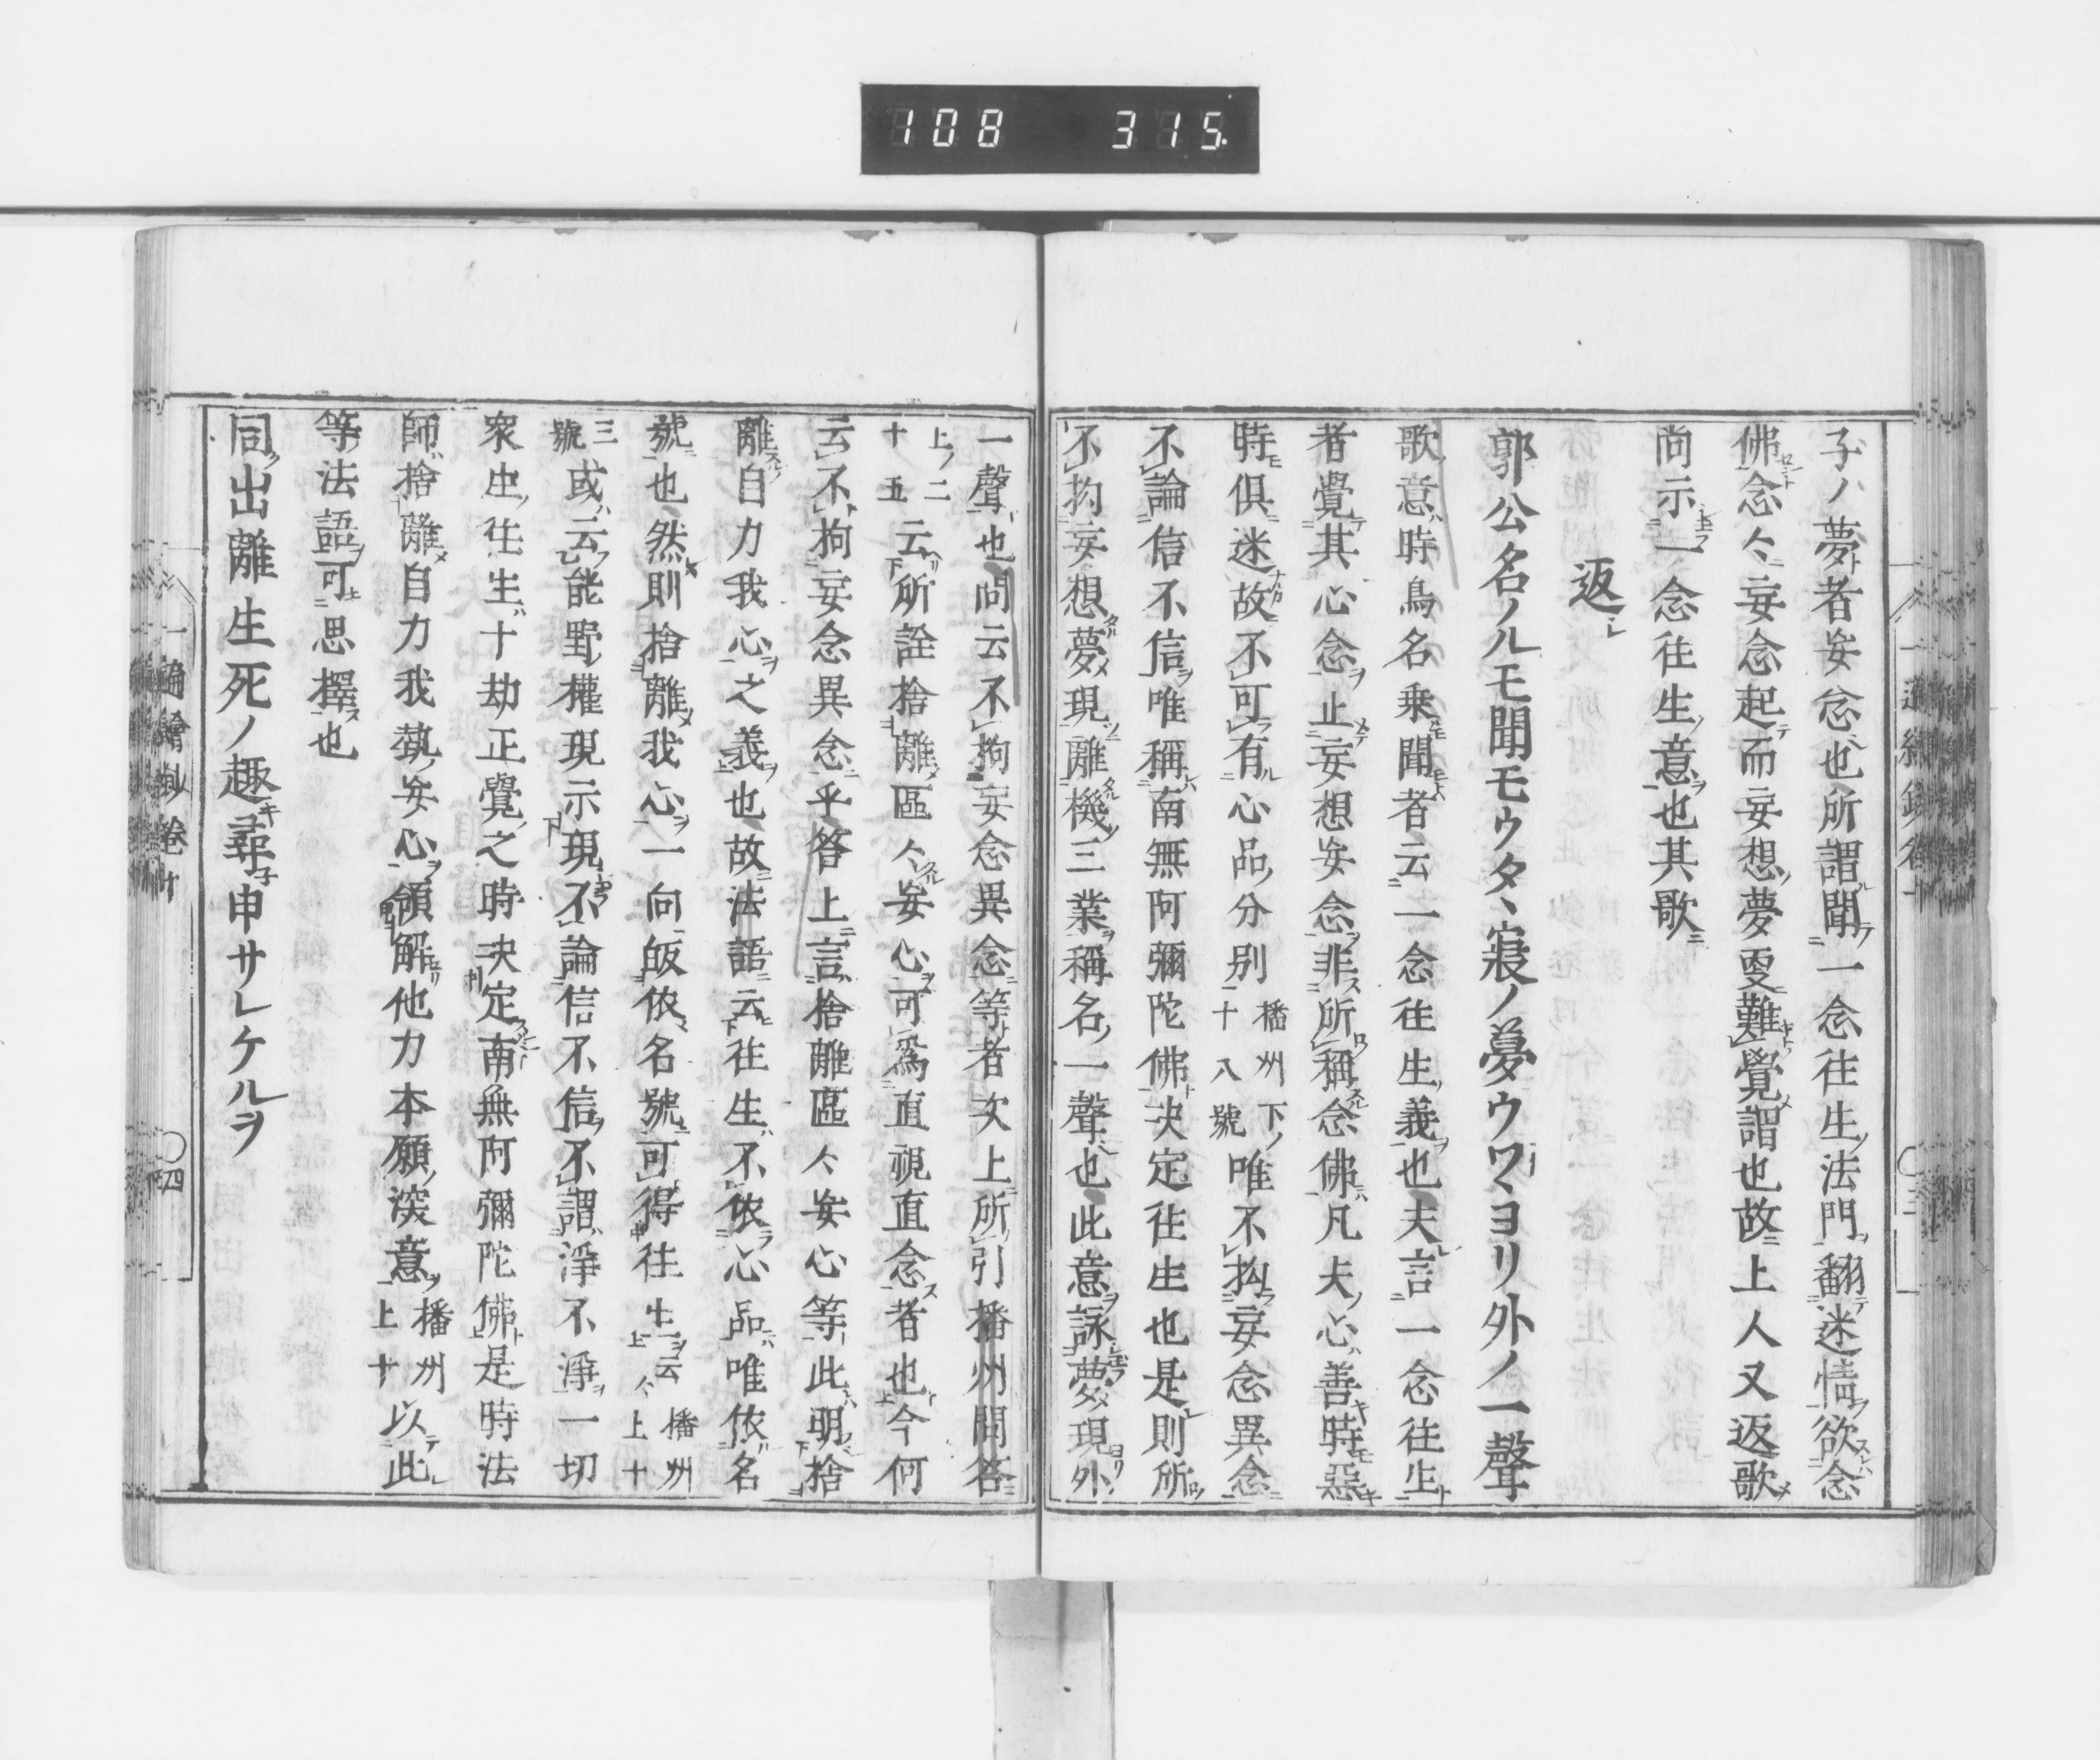 108 315
子ノ夢者妄念也所謂聞一念往生法門翻迷情欲念
佛念々妄念起而妄想夢更難覺謂也故上人又返歌
尚示一念往生意也其歌
返
郭公名ノルモ聞モウタヽ寢ノ夢ウツヽヨリ外ノ一聲
歌意時鳥名乗聞者云一念往生義也夫言一念往生
者覺其心念止妄想妄念非所稱念佛凡夫心善時惡
時俱迷故不可有心品分別播州下ノ十八號唯不拘妄念異念
不論信不信唯稱南無阿彌陀佛決定往生也是則所
不拘妄想夢現離機三業稱名一聲也此意詠夢現外
一聲也問云不拘妄念異念等者次上所引播州問答
上ノ二十五云所詮捨離區々安心可爲直視直念者也今何
云不拘妄念異念乎答上言捨離區々安心等此明捨
離自力我心之義也故法語云往生不依心品唯依名
號也然則捨離我心一向皈依名號可得往生云々播州上十
三號或云能野權現示現不論信不信不謂淨不淨一切
衆生往生十劫正覺之時決定南無阿彌陀佛是時法
師捨離自力我執安心領解他力本願深意播州上十以此
等法語可思擇也
同出離生死ノ趣尋申サレケルヲ
一遍繪鈔卷十
〇四